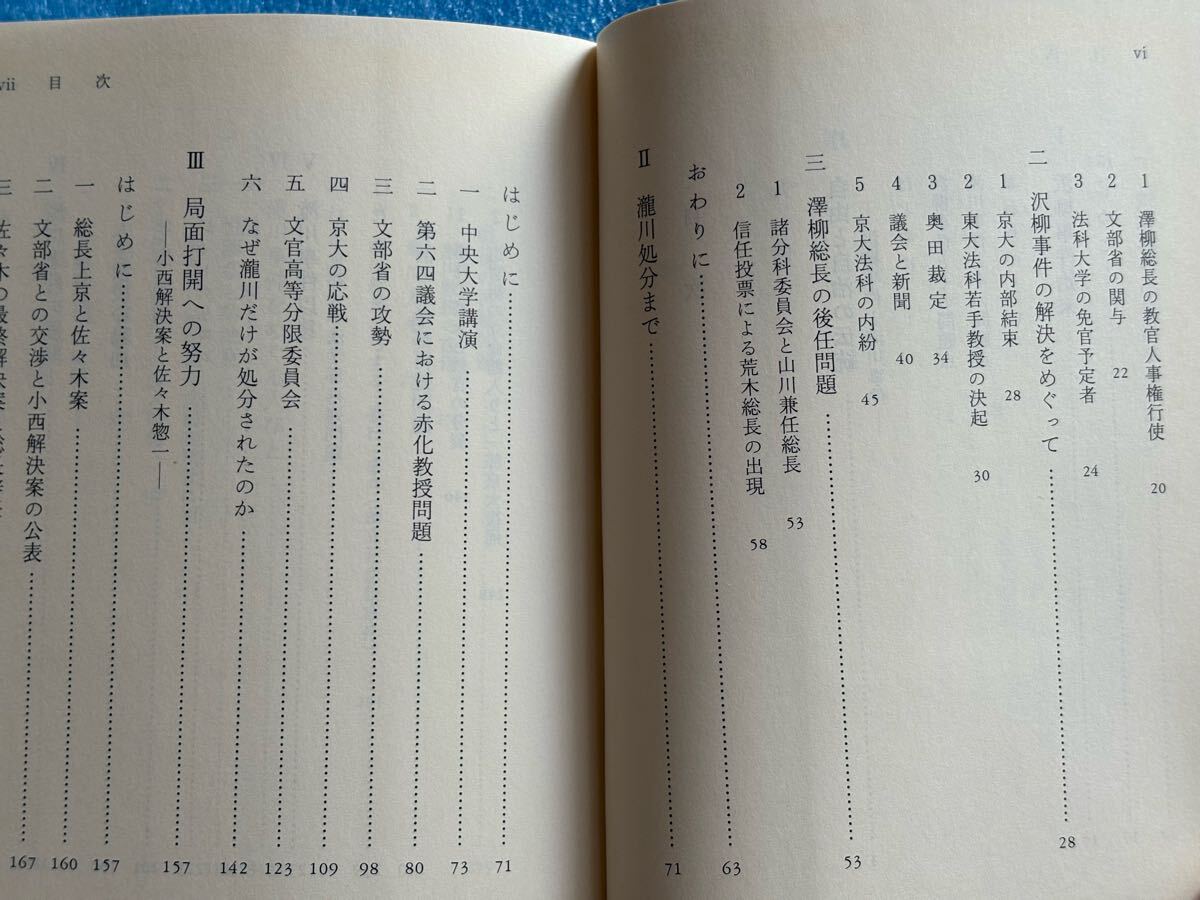 vi
1 澤柳総長の教官人事権行使 20
2 文部省の関与 22
3 法科大学の免官予定者 24
二 沢柳事件の解決をめぐって 28
1 京大の内部結束 28
2 東大法科若手教授の決起 30
3 奥田裁定 34
4 議会と新聞 40
5 京大法科の内紛 45
三 澤柳総長の後任問題 53
1 諸分科委員会と山川兼任総長 53
2 信任投票による荒木総長の出現 58
おわりに 63
Ⅱ 瀧川処分まで 71
vii 目次
はじめに 71
一 中央大学講演 73
二 第六四議会における赤化教授問題 80
三 文部省の攻勢 98
四 京大の応戦 109
五 文官高等分限委員会 123
六 なぜ瀧川だけが処分されたのか 142
Ⅲ 局面打開への努力 157
——小西解決案と佐々木惣一——
はじめに 157
一 総長上京と佐々木案 160
二 文部省との交渉と小西解決案の公表 167
三 佐々木の最終解決案